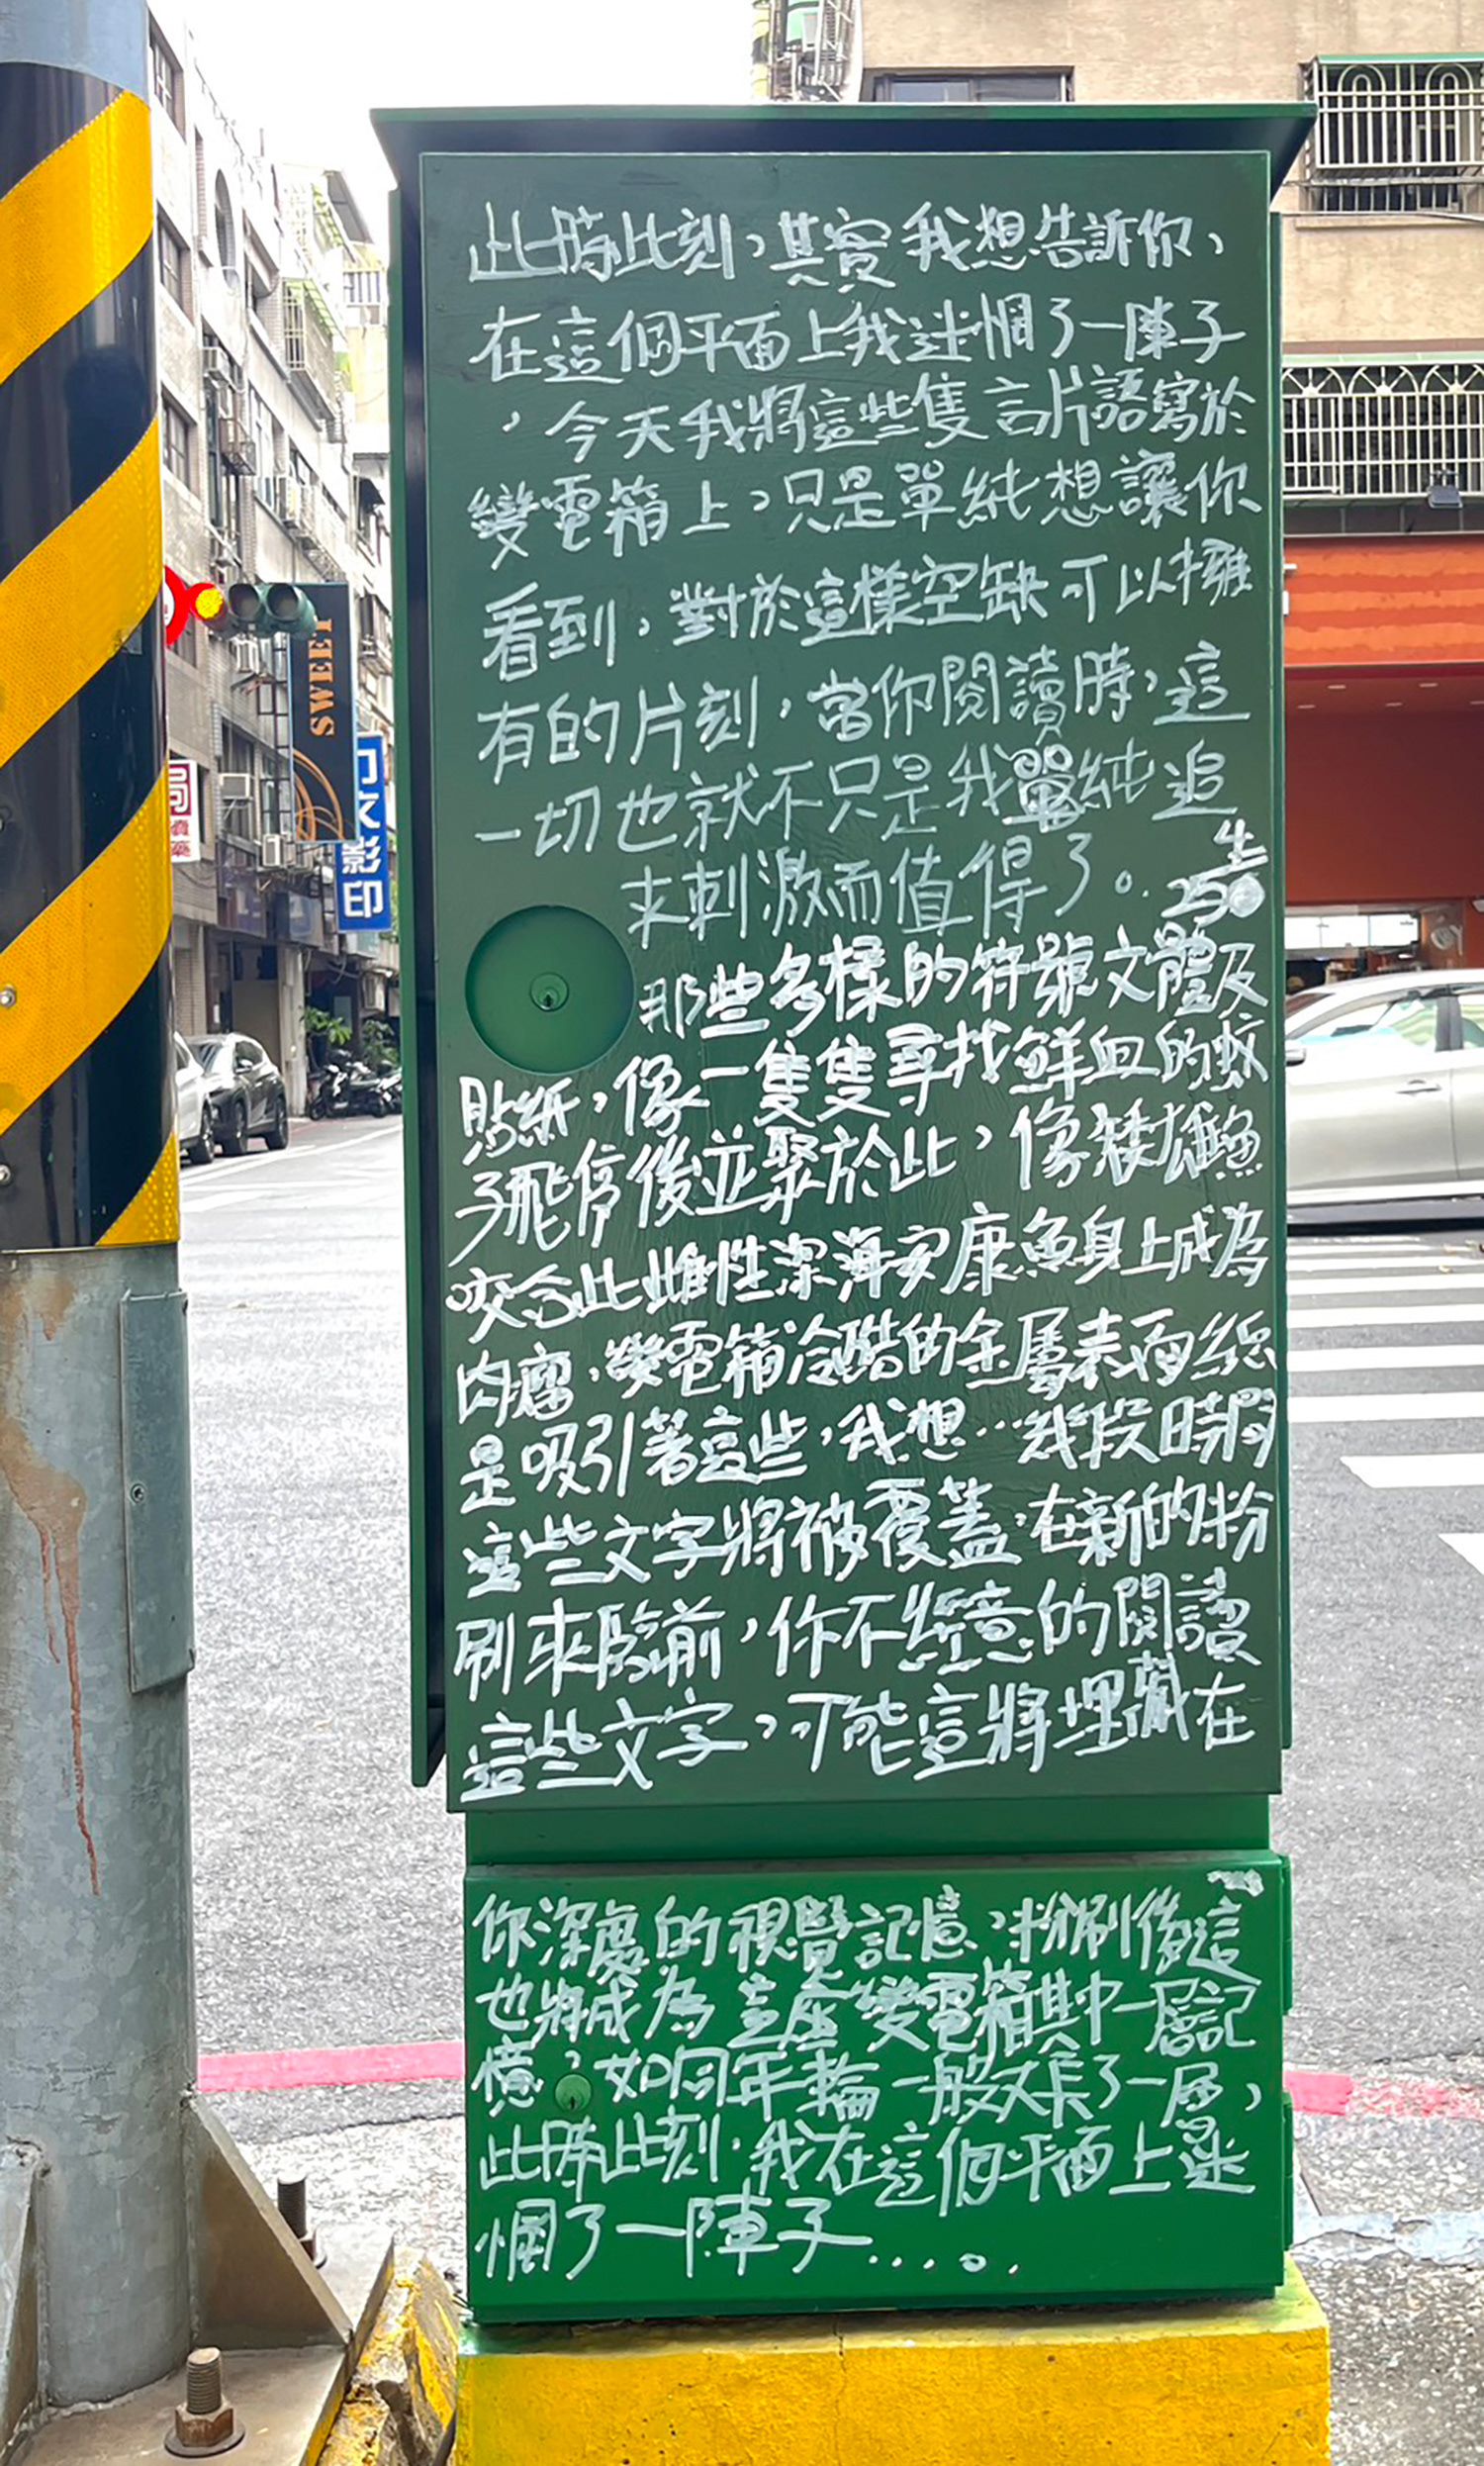 此時此刻，其實我想告訴你，
在這個平面上我迷惘了一陣子
，今天我將這些隻言片語寫於
變電箱上，只是單純想讓你
看到，對於這樣空缺可以擁
有的片刻，當你閱讀時，這
一切也就不只是我單純追
求刺激而值得了。
那些多樣的符號文體及
貼紙，像一隻隻尋找鮮血的蚊
子飛停後並聚於此，像矮雄魚
咬合此雌性深海安康魚身上成為
肉瘤，變電箱冷酷的金屬表面總
是吸引著這些，我想…幾段時間
這些文字將被覆蓋，在新的粉
刷來臨前，你不經意的閱讀
這些文字，可能這將埋藏在
你深處的視覺記憶，粉刷後這
也將成為這座變電箱其中一層記
憶，如同年輪一般成長了一層，
此時此刻，我在這個平面上迷
惘了一陣子....。.
SWEET
影印
局